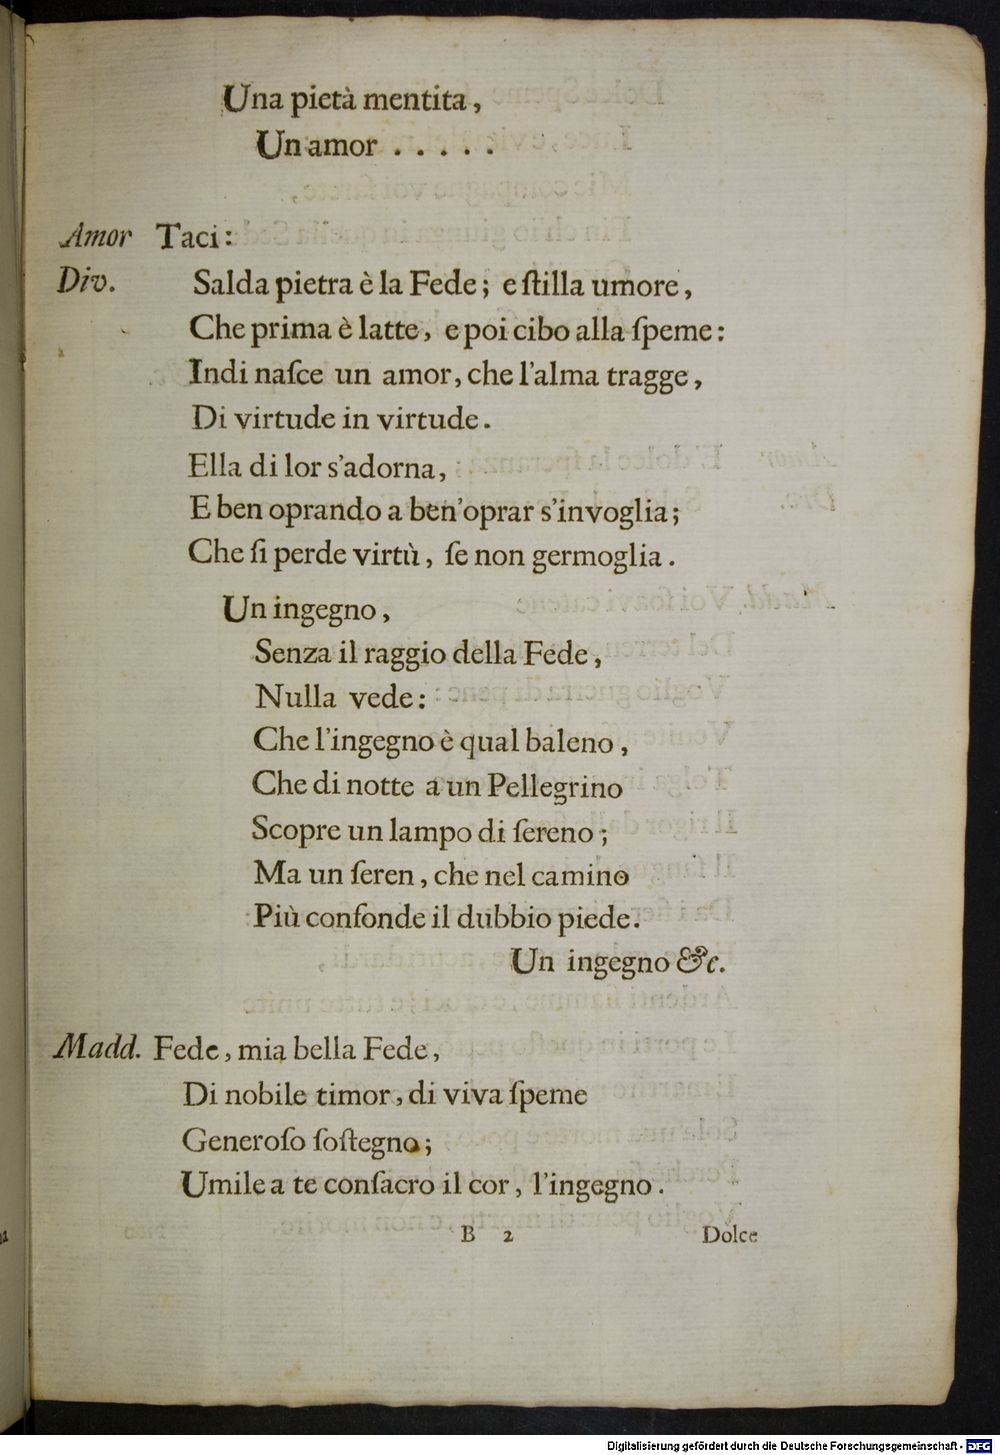 Una pietà mentita,
Un amor . . . . .
Amor Taci:
Div. Salda pietra è la Fede; e ſtilla umore,
Che prima è latte, e poi cibo alla ſpeme:
Indi naſce un amor, che l'alma tragge,
Di virtude in virtude.
Ella di lor s'adorna,
E ben oprando a ben'oprar s'invoglia;
Che ſi perde virtù, ſe non germoglia.
Un ingegno,
Senza il raggio della Fede,
Nulla vede:
Che l'ingegno è qual baleno,
Che di notte a un Pellegrino
Scopre un lampo di ſereno;
Ma un ſeren, che nel camino
Più confonde il dubbio piede.
Un ingegno &c.
Madd. Fede, mia bella Fede,
Di nobile timor, di viva ſpeme
Generoſo ſoſtegno;
Umile a te conſacro il cor, l'ingegno.
B 2 Dolce
Digitalisierung gefördert durch die Deutsche Forschungsgemeinschaft - DFG